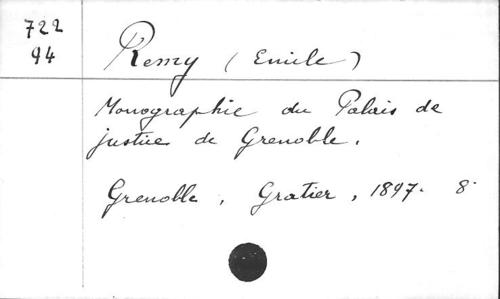 722
94
Remy (Emile)
Monographie du Palais de
justice de Grenoble.
Grenoble, Gratier, 1897. 8°